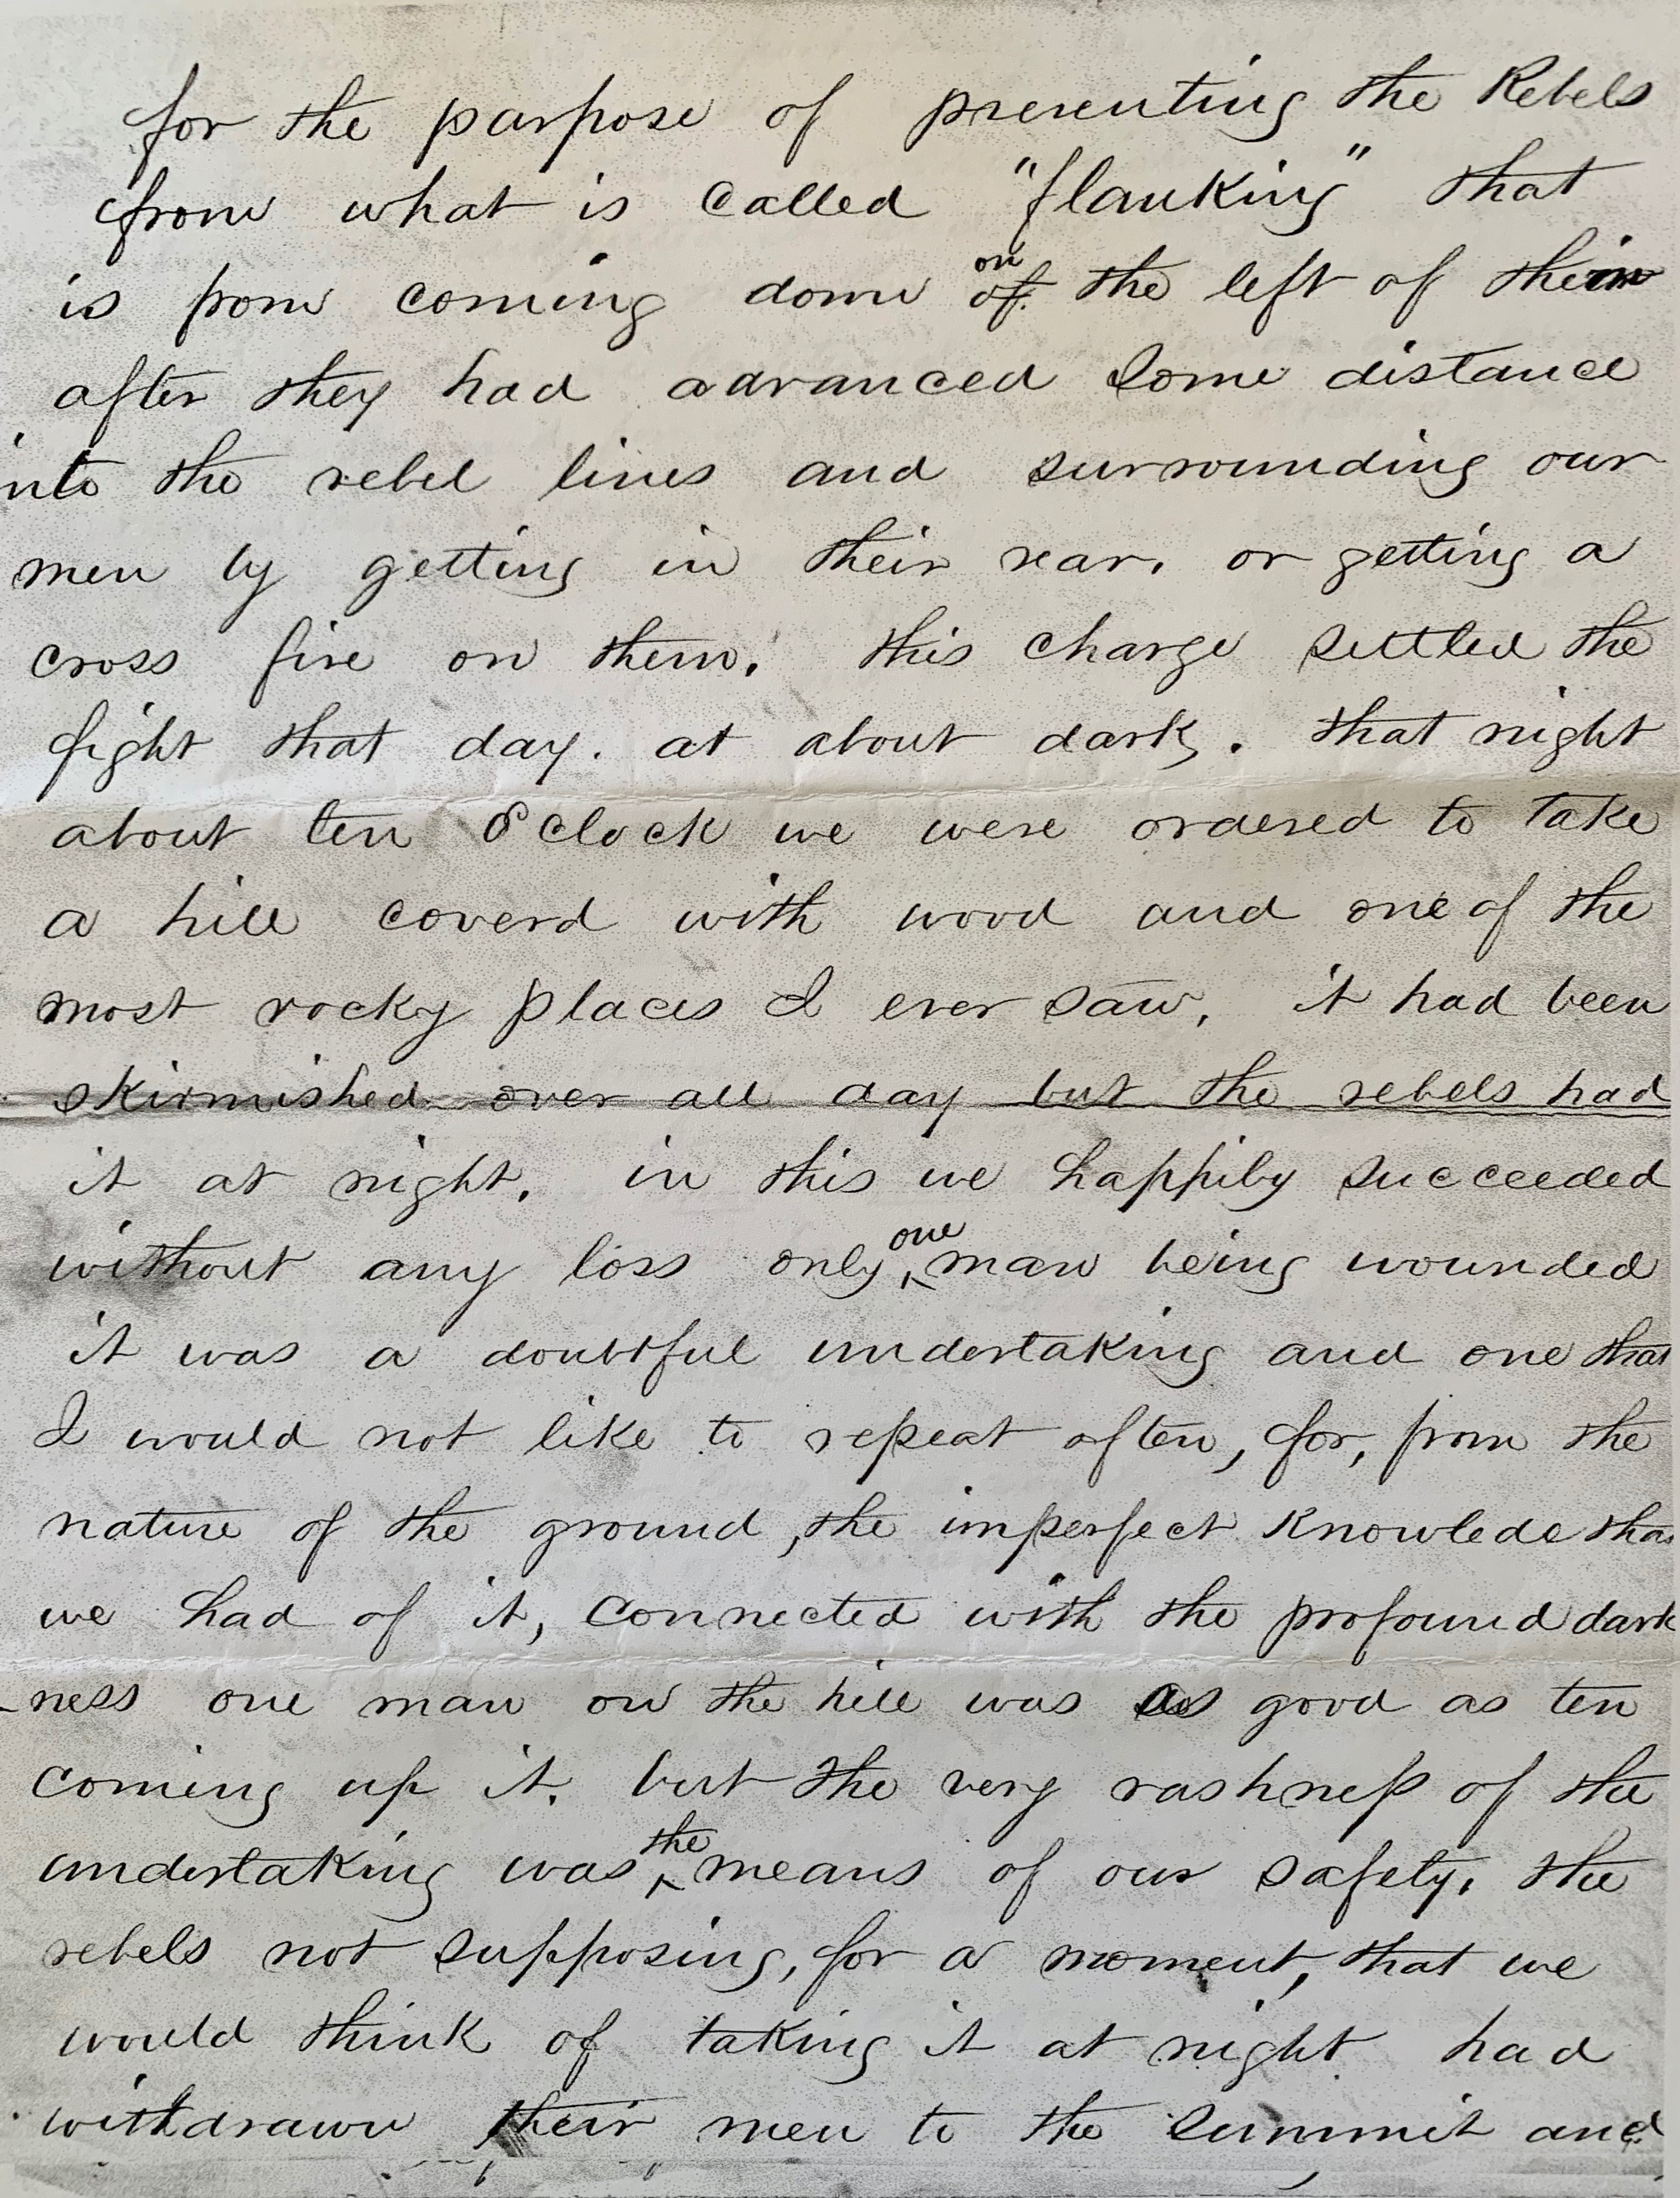 for the purpose of preventing the Rebels
from what is called "flanking" that
is from coming down on the left of them
after they had advanced some distance
into the rebel lines and surrounding our
men by getting in their rear, or getting a
cross fire on them. this charge settled the
fight that day. at about dark. that night
about ten o'clock we were ordered to take
a hill coverd with wood and one of the
most rocky places I ever saw, it had been
skirmished over all day but the rebels had
it at night. in this we happily succeeded
without any loss only one man being wounded
it was a doubtful undertaking and one that
I would not like to repeat often, for, from the
nature of the ground, the imperfect knowlede that
we had of it, connected with the profound dark
-ness one man on the hill was as good as ten
coming up it. but the very rashness of the
undertaking was the means of our safety, the
rebels not supposing, for a moment, that we
would think of taking it at night had
withdrawn their men to the summit and